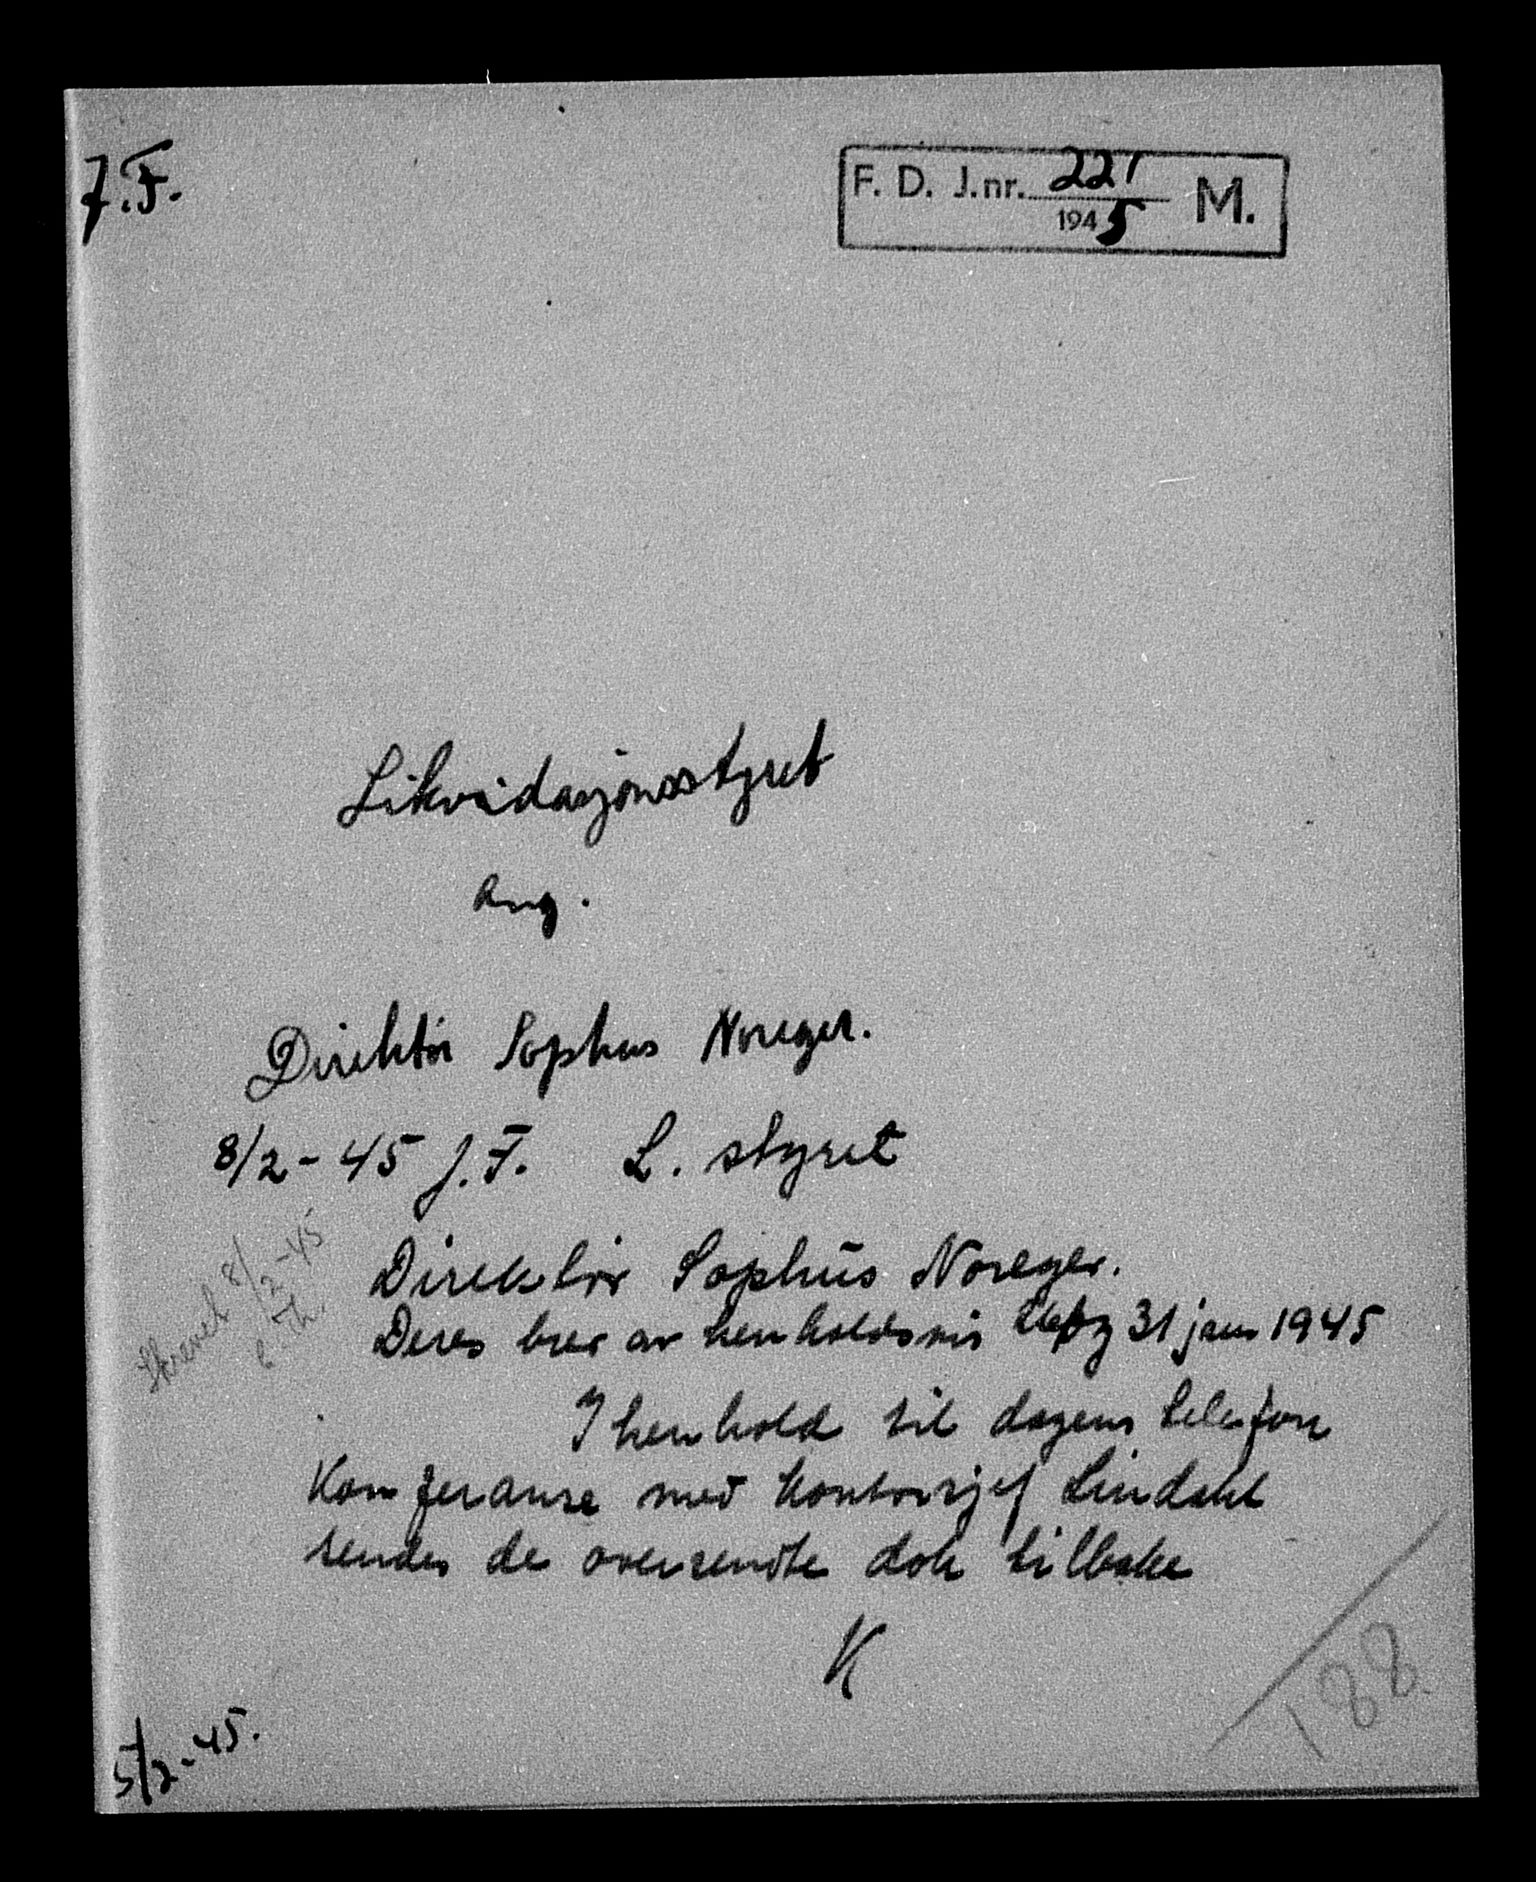 J.F.
F. D. J.nr. 221 M.
1945
Likvidasjonsstyret
ang.
Direktør Sophus Noreger.
8/2-45 J.F. L. styret
Direktør Sophus Noreger.
Deres brev av henholdsvis 31 jan 1945
Skrevet 8/2-45
I henhold til dagens telefon
konferanse med kontorsjef Lindahl
sendes de oversendte dok tilbake
K
188
5/2-45.